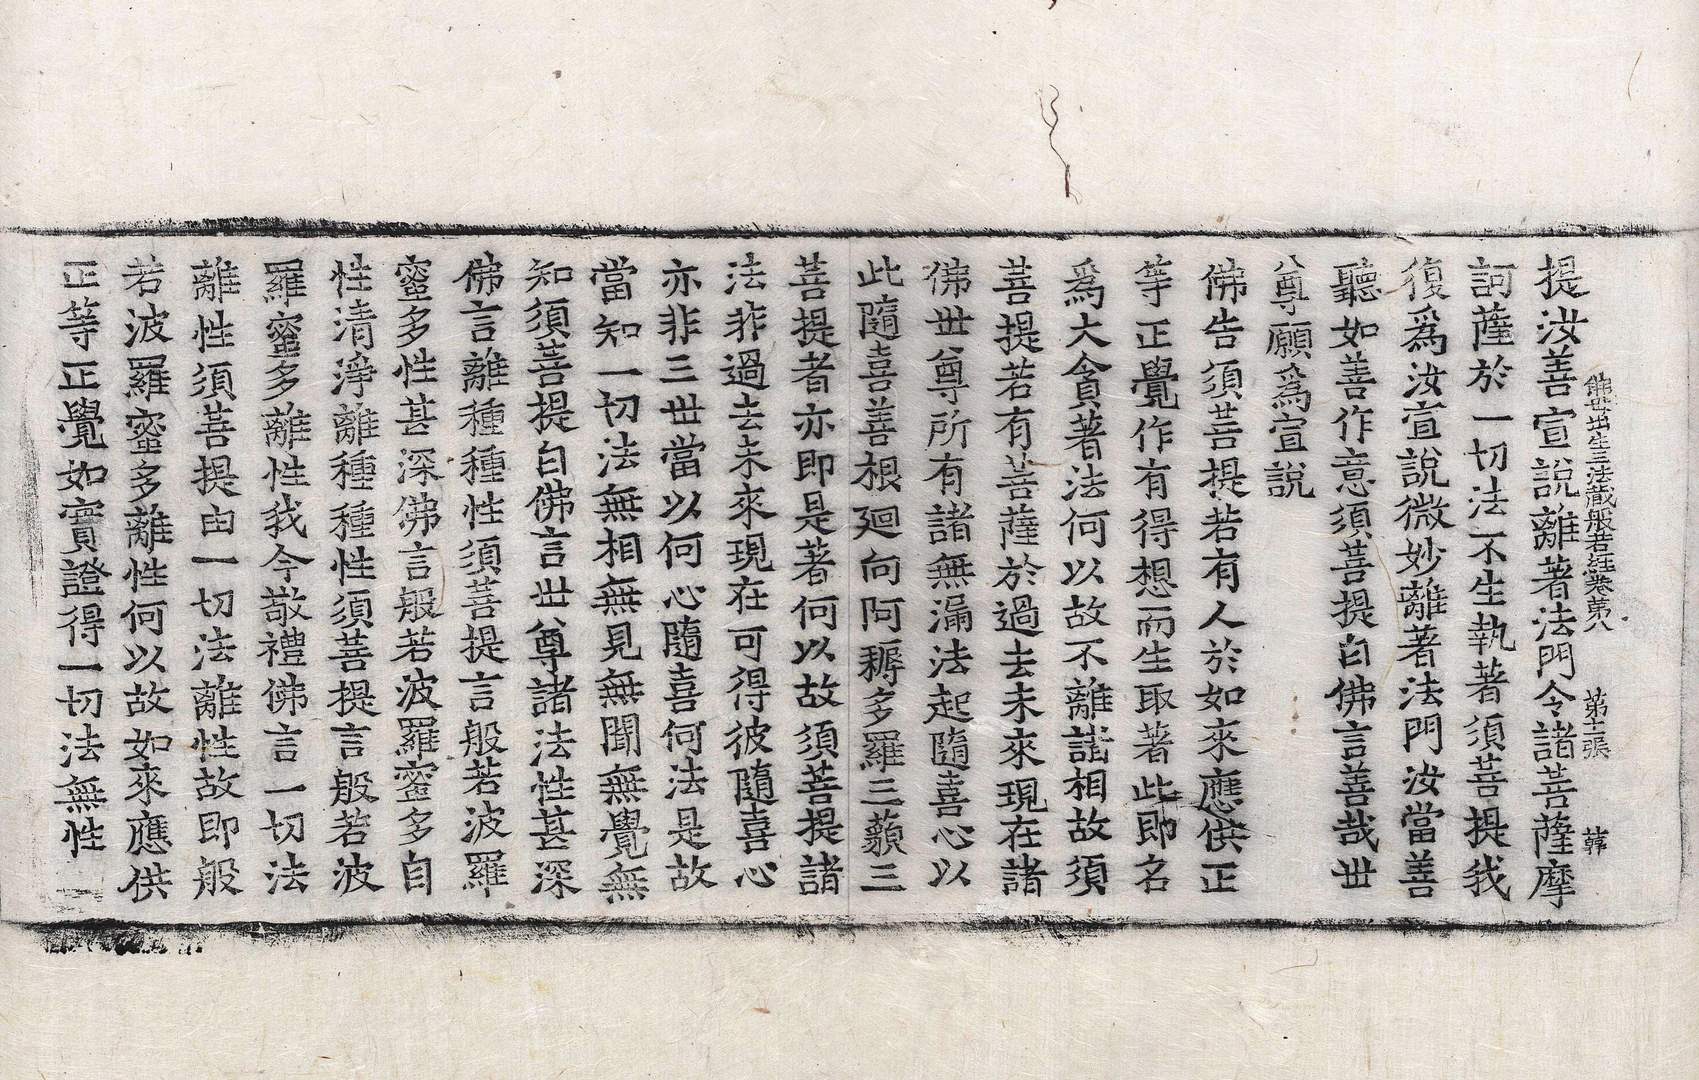 佛母出生三法藏般若經卷第八　第十二張　韓
提汝善宣說離著法門令諸菩薩摩
訶薩於一切法不生執著須菩提我
復爲汝宣說微妙離著法門汝當善
聽如善作意須菩提白佛言善哉世
尊願爲宣說
佛告須菩提若有人於如來應供正
等正覺作有得想而生取著此即名
爲大貪著法何以故不離諸相故須
菩提若有菩薩於過去未來現在諸
佛世尊所有諸無漏法起隨喜心以
此隨喜善根迴向阿耨多羅三藐三
菩提者亦即是著何以故須菩提諸
法非過去未來現在可得彼隨喜心
亦非三世當以何心隨喜何法是故
當知一切法無相無見無聞無覺無
知須菩提白佛言世尊諸法性甚深
佛言離種種性須菩提言般若波羅
蜜多性甚深佛言般若波羅蜜多自
性清淨離種種性須菩提言般若波
羅蜜多離性我今敬禮佛言一切法
離性須菩提由一切法離性故即般
若波羅蜜多離性何以故如來應供
正等正覺如實證得一切法無性